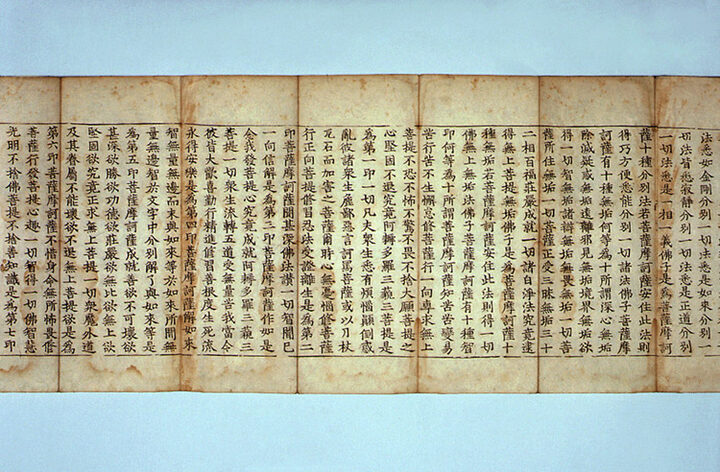 法悉如金剛分別一切法悉是如來分別一
切法皆悉寂靜分別一切法悉是正道分別
一切法悉是一相一義佛子是為菩薩摩訶
薩十種分別法若菩薩摩訶薩安住此法則
得巧方便悉能分別一切諸法佛子菩薩摩
訶薩有十種無垢何等為十所謂深心無垢
除滅疑或無垢遠離邪見無垢境界無垢欲
得一切智無垢諸辯無垢無畏無垢一切菩
薩所住無垢一切菩薩正受三昧無垢三十
二相百福莊嚴成就一切諸白淨法究竟逮
得無上菩提無垢佛子是為菩薩摩訶薩十
種無垢若菩薩摩訶薩安住此法則得一切
佛無上無垢法佛子菩薩摩訶薩有十種智
印何等為十所謂菩薩摩訶薩知苦苦變易
苦行苦不生懈怠修菩薩行一向專求無上
菩提不恐不怖不驚不畏不捨大願求菩提之
心堅固不退究竟阿耨多羅三藐三菩提是
為第一印一切凡夫衆生悉有煩惱顛倒惑
亂彼諸衆生麁鄙惡言訶罵菩薩或以刀杖
瓦石而加害之菩薩爾時心無憂惱修菩薩
行正向菩提修習忍法受證離生是為第二
印菩薩摩訶薩聞甚深佛法讚一切智聞已
一向信解是為第三印菩薩摩訶薩作如是
念我發菩提心究竟成就阿耨多羅三藐三
菩提一切衆生流轉五道受無量苦我當令
彼皆大歡喜勤行精進修習善根度生死流
永得安樂是為第四印菩薩摩訶薩解如來
智無量無邊而未與如來等於如來所聞無
量無邊智於文字中分別解了與如來等是
為第五印菩薩摩訶薩成就善欲不可壞欲
甚深欲勝欲功德欲莊嚴欲無比欲無上欲
堅固欲究竟正求無上菩提一切衆魔外道
及其眷屬不能壞欲不退無上菩提欲是為
第六印菩薩摩訶薩不惜身命無所怖畏修
菩薩行發菩提心趣一切智得一切佛智慧
光明不捨佛菩提不捨善知識是為第七印